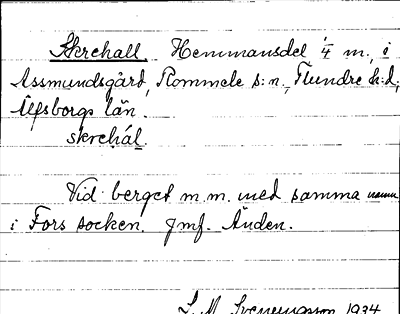 Skrehall. Hemmansdel 1/4 m., i
Assmundsgård, Rommele s:n., Flundre h:d,
Älfsborgs län.
skrehál.
Vid berget m.m. med samma namn
i Fors socken. Jmf. Änden.
L. M. Svenungsson 1934